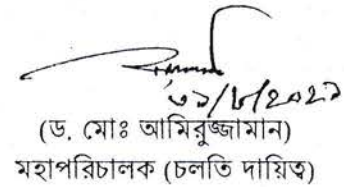 ৩১/৮/২০২১
(ড. মোঃ আমিরুজ্জামান)
মহাপরিচালক (চলতি দায়িত্ব)